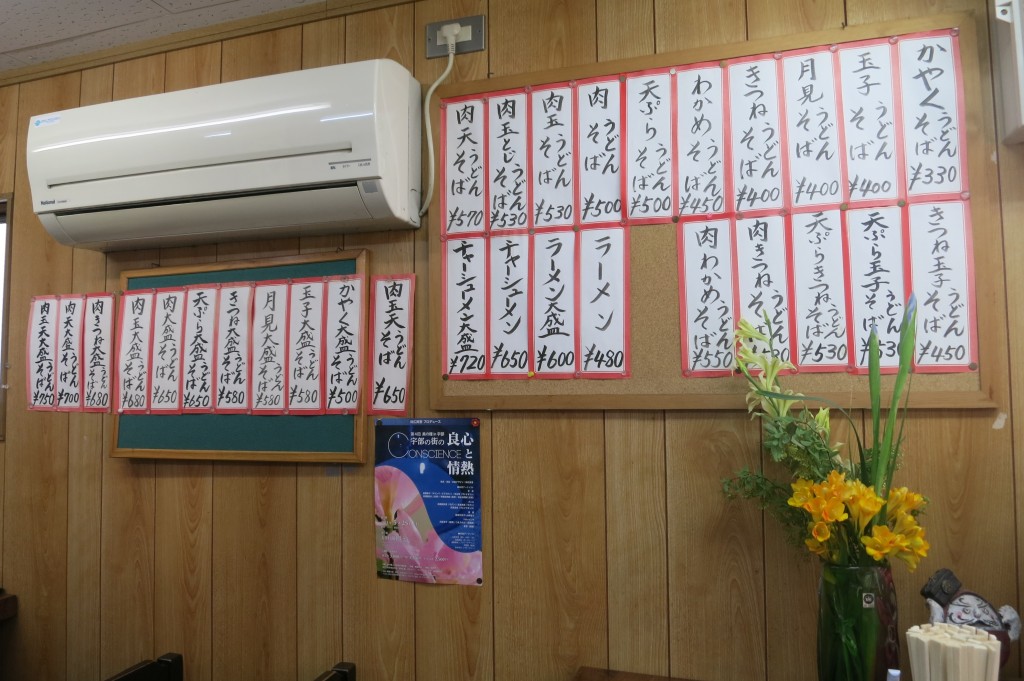 かやくうどんそば ¥330
玉子うどんそば ¥400
月見うどんそば ¥400
きつねうどんそば ¥400
わかめうどんそば ¥450
天ぷらうどんそば ¥500
肉うどんそば ¥500
肉玉うどんそば ¥530
肉玉とじうどんそば ¥530
肉天うどんそば ¥570
きつね玉子うどんそば ¥450
天ぷら玉子うどんそば
天ぷらきつねうどんそば ¥530
肉きつねうどんそば
肉わかめうどんそば ¥550
ラーメン ¥480
ラーメン大盛 ¥600
チャーシューメン ¥650
チャーシューメン大盛 ¥720
肉玉天うどんそば ¥650
かやく大盛うどんそば ¥500
玉子大盛うどんそば ¥580
月見大盛うどんそば ¥580
きつね大盛うどんそば ¥580
天ぷら大盛うどんそば ¥650
肉大盛うどんそば ¥650
肉玉大盛うどんそば ¥680
肉きつね大盛うどんそば ¥680
肉天大盛うどんそば ¥700
肉玉天大盛うどんそば ¥750
National
宇部の街の
良心と
情熱
CONSCIENCE